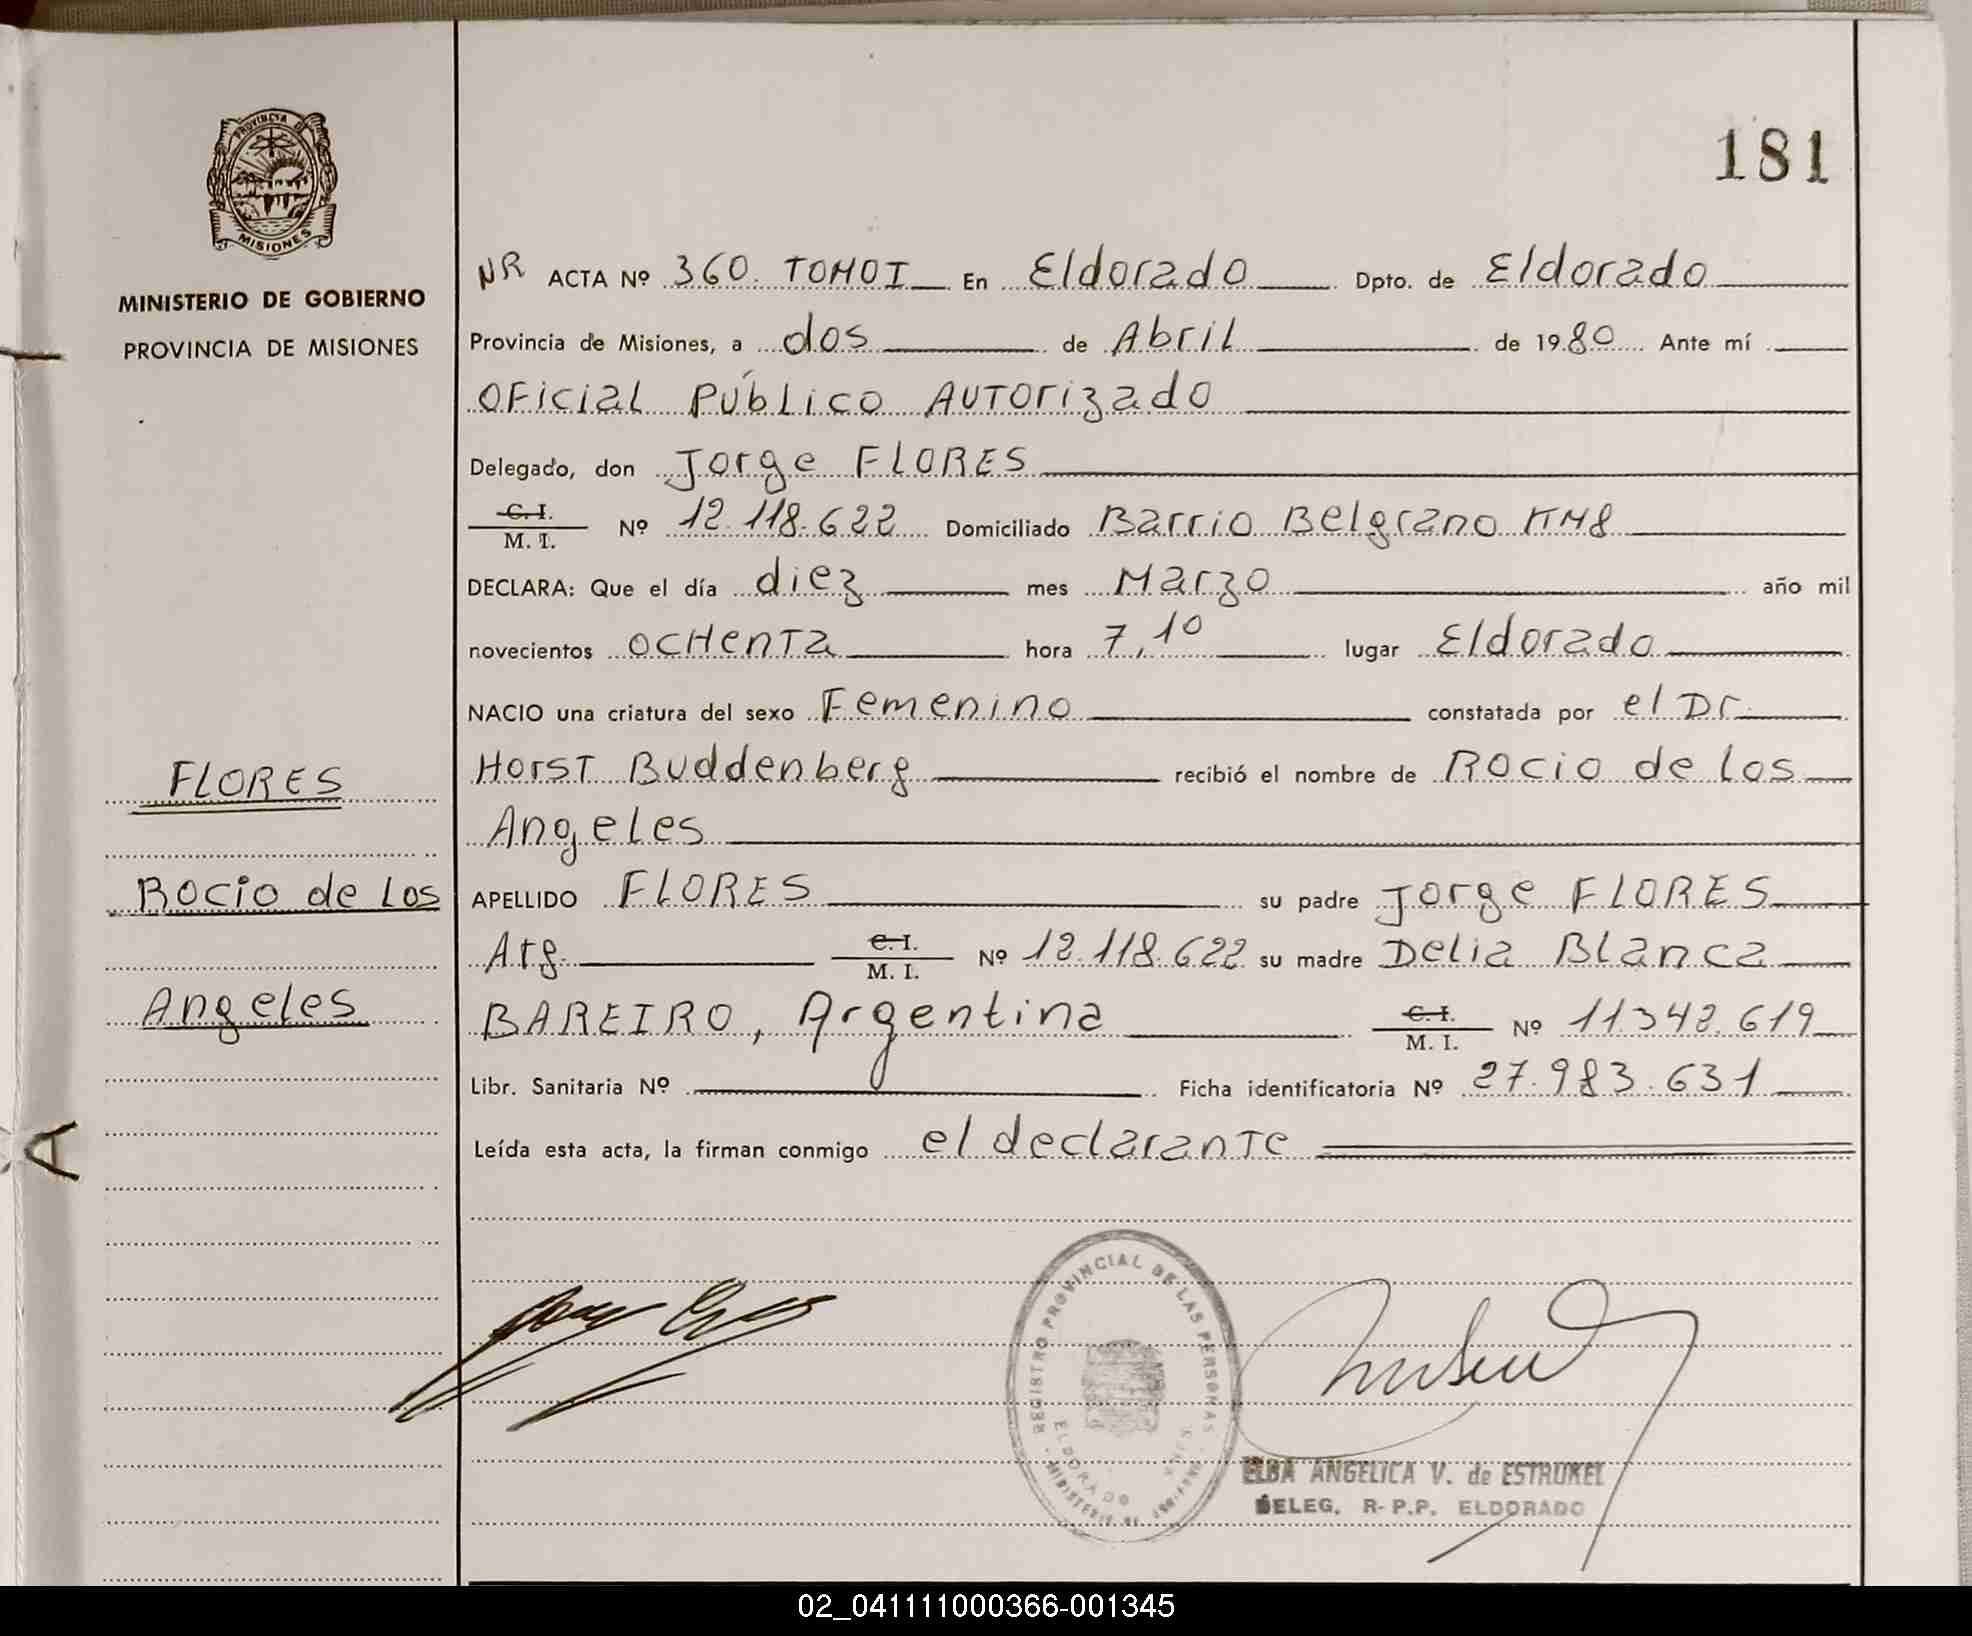 PROVINCIA DE
MISIONES
MINISTERIO DE GOBIERNO
PROVINCIA DE MISIONES
181
NR ACTA Nº 360. TOMO I En Eldorado Dpto. de Eldorado
Provincia de Misiones, a dos de Abril de 1980 Ante mí
OFicial Público Autorizado
Delegado, don Jorge FLORES
C. I.
M. I. Nº 12.118.622 Domiciliado Barrio Belgrano KM8
DECLARA: Que el día diez mes Marzo año mil
novecientos ochenta hora 7,10 lugar Eldorado
NACIO una criatura del sexo Femenino constatada por el Dr.
Horst Buddenberg recibió el nombre de Rocio de Los
Angeles
APELLIDO FLORES su padre Jorge FLORES
Arg. C. I.
M. I. Nº 12.118.622 su madre Delia Blanca
BAREIRO, Argentina C. I.
M. I. Nº 11.342.619
Libr. Sanitaria Nº Ficha identificatoria Nº 27.983.631
Leída esta acta, la firman conmigo el declarante
FLORES
Rocio de Los
Angeles
A
REGISTRO PROVINCIAL DE LAS PERSONAS
ELDORADO
ELBA ANGELICA V. de ESTRUKEL
DELEG. R-P.P. ELDORADO
02_041111000366-001345